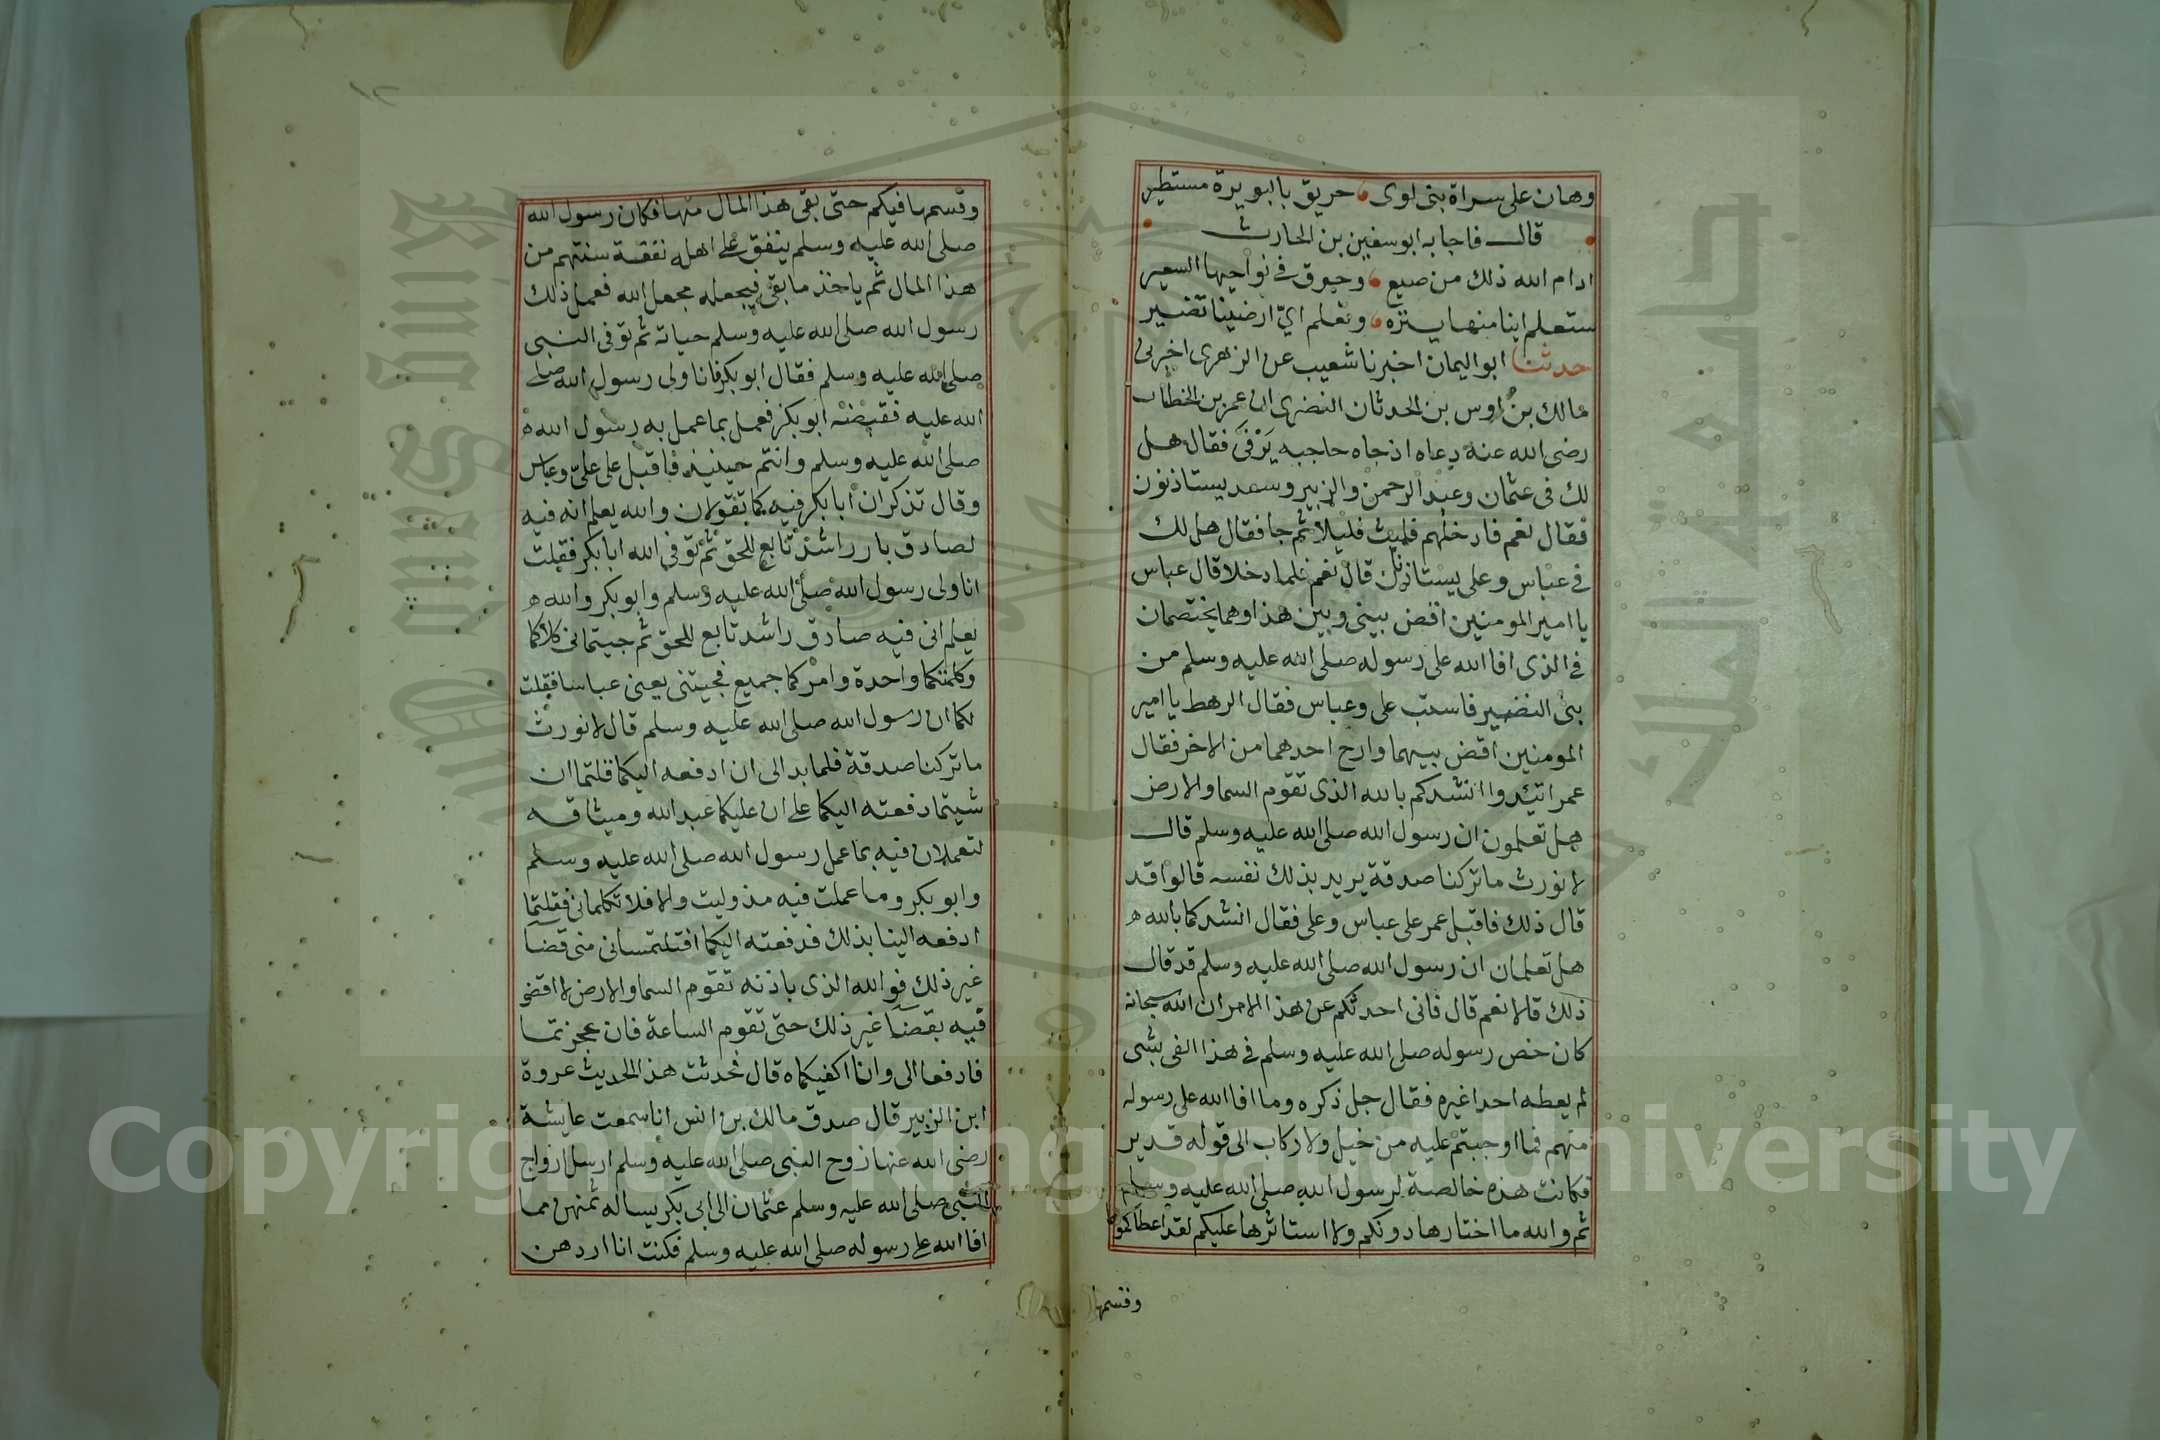 وهان على سراة بني لوى حريق بالبويرة مستطير
قال فاجابه ابوسفين بن الحارث
ادام الله ذلك من صنيع وحرق في نواحيها السعير
ستعلم اينا منها بنزه وتعلم اي ارضينا تضير
حدثنا ابو اليمان اخبرنا شعيب عن الزهرى اخبرنى
مالك بن اوس بن الحدثان النضرى ان عمر بن الخطاب
رضى الله عنه دعاه اذ جاه حاجبه يرفى فقال هل
لك فى عثمان وعبد الرحمن والزبير وسعد يستاذنون
فقال نعم فادخلهم فلبث قليلا ثم جا فقال هل لك
في عباس وعلى يستاذنان قال نعم فلما دخلا قال عباس
يا امير المومنين اقض بينى وبين هذا وهما يختصمان
فى الذى افا الله على رسوله صلى الله عليه وسلم من
بنى النضير فاستب على وعباس فقال الرهط يا امير
المومنين اقض بينهما وارح احدهما من الاخر فقال
عمر اتيدوا انشدكم بالله الذى تقوم السما والارض
هل تعلمون ان رسول الله صلى الله عليه وسلم قال
لا نورث ما تركنا صدقة يريد بذلك نفسه قالوا قد
قال ذلك فاقبل عمر على عباس وعلى فقال انشدكما بالله
هل تعلمان ان رسول الله صلى الله عليه وسلم قد قال
ذلك قالا نعم قال فانى احدثكم عن هذا الامر ان الله سبحانه
كان خص رسوله صلى الله عليه وسلم فى هذا الفى بشى
لم يعطه احدا غيره فقال جل ذكره وما افا الله على رسوله
منهم فما اوجبتم عليه من خيل ولا ركاب الى قوله قدير
فكانت هذه خالصة لرسول الله صلى الله عليه وسلم
ثم والله ما اختارها دونكم ولا استاثرها عليكم لقد اعطاكموها
وقسمها
وقسمها فيكم حتى بقى هذا المال منها فكان رسول الله
صلى الله عليه وسلم ينفق على اهله نفقة سنتهم من
هذا المال ثم ياخذ ما بقى فيجعله مجعل الله فعمل ذلك
رسول الله صلى الله عليه وسلم حياته ثم توفى النبى
صلى الله عليه وسلم فقال ابو بكر فانا ولى رسول الله صلى
الله عليه فقبضه ابو بكر فعمل بما عمل به رسول الله
صلى الله عليه وسلم وانتم حينيذ فاقبل على على وعباس
وقال تذكران ابا بكر فيه كما تقولان والله يعلم انه فيه
لصادق بار راشد تابع للحق ثم توفى الله ابا بكر فقلت
انا ولى رسول الله صلى الله عليه وسلم وابو بكر والله
يعلم انى فيه صادق راشد تابع للحق ثم جيتمانى كلاكما
وكلمتكما واحدة وامركما جميع فجيتنى يعنى عباسا فقلت
لكما ان رسول الله صلى الله عليه وسلم قال لا نورث
ما تركنا صدقة فلما بدا لى ان ادفعه اليكما قلتما ان
شيتما دفعته اليكما على ان عليكما عبد الله وميثاقه
لتعملان فيه بما عمل رسول الله صلى الله عليه وسلم
وابو بكر وما عملت فيه مذ وليت والا فلا تكلمانى فقلتما
ادفعه الينا بذلك فدفعته اليكما افتلتمسانى منى قضا
غير ذلك فوالله الذى باذنه تقوم السما والارض لا اقضى
فيه بقضا غير ذلك حتى تقوم الساعة فان عجزتما
فادفعا الى وانا اكفيكماه قال فحدثت هذا الحديث عروة
ابن الزبير قال صدق مالك بن انس انا سمعت عايشة
رضى الله عنها زوج النبى صلى الله عليه وسلم ارسل ازواج
النبى صلى الله عليه وسلم عثمان الى ابى بكر يساله ثمنهن مما
افا الله على رسوله صلى الله عليه وسلم فكنت انا اردهن
Copyright © King Saud University